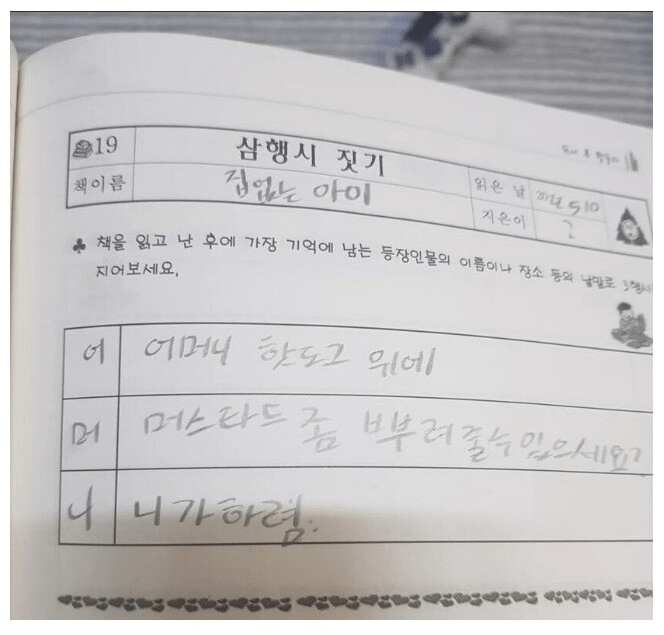 19 삼행시 짓기
책이름 집없는 아이
읽은 날 5 10
지은이 ?
♣ 책을 읽고 난 후에 가장 기억에 남는 등장인물의 이름이나 장소 등의 낱말로 3행시
지어보세요.
어 어머니 핫도그 위에
머 머스타드 좀 뿌려줄수 있으세요?
니 니가하렴.